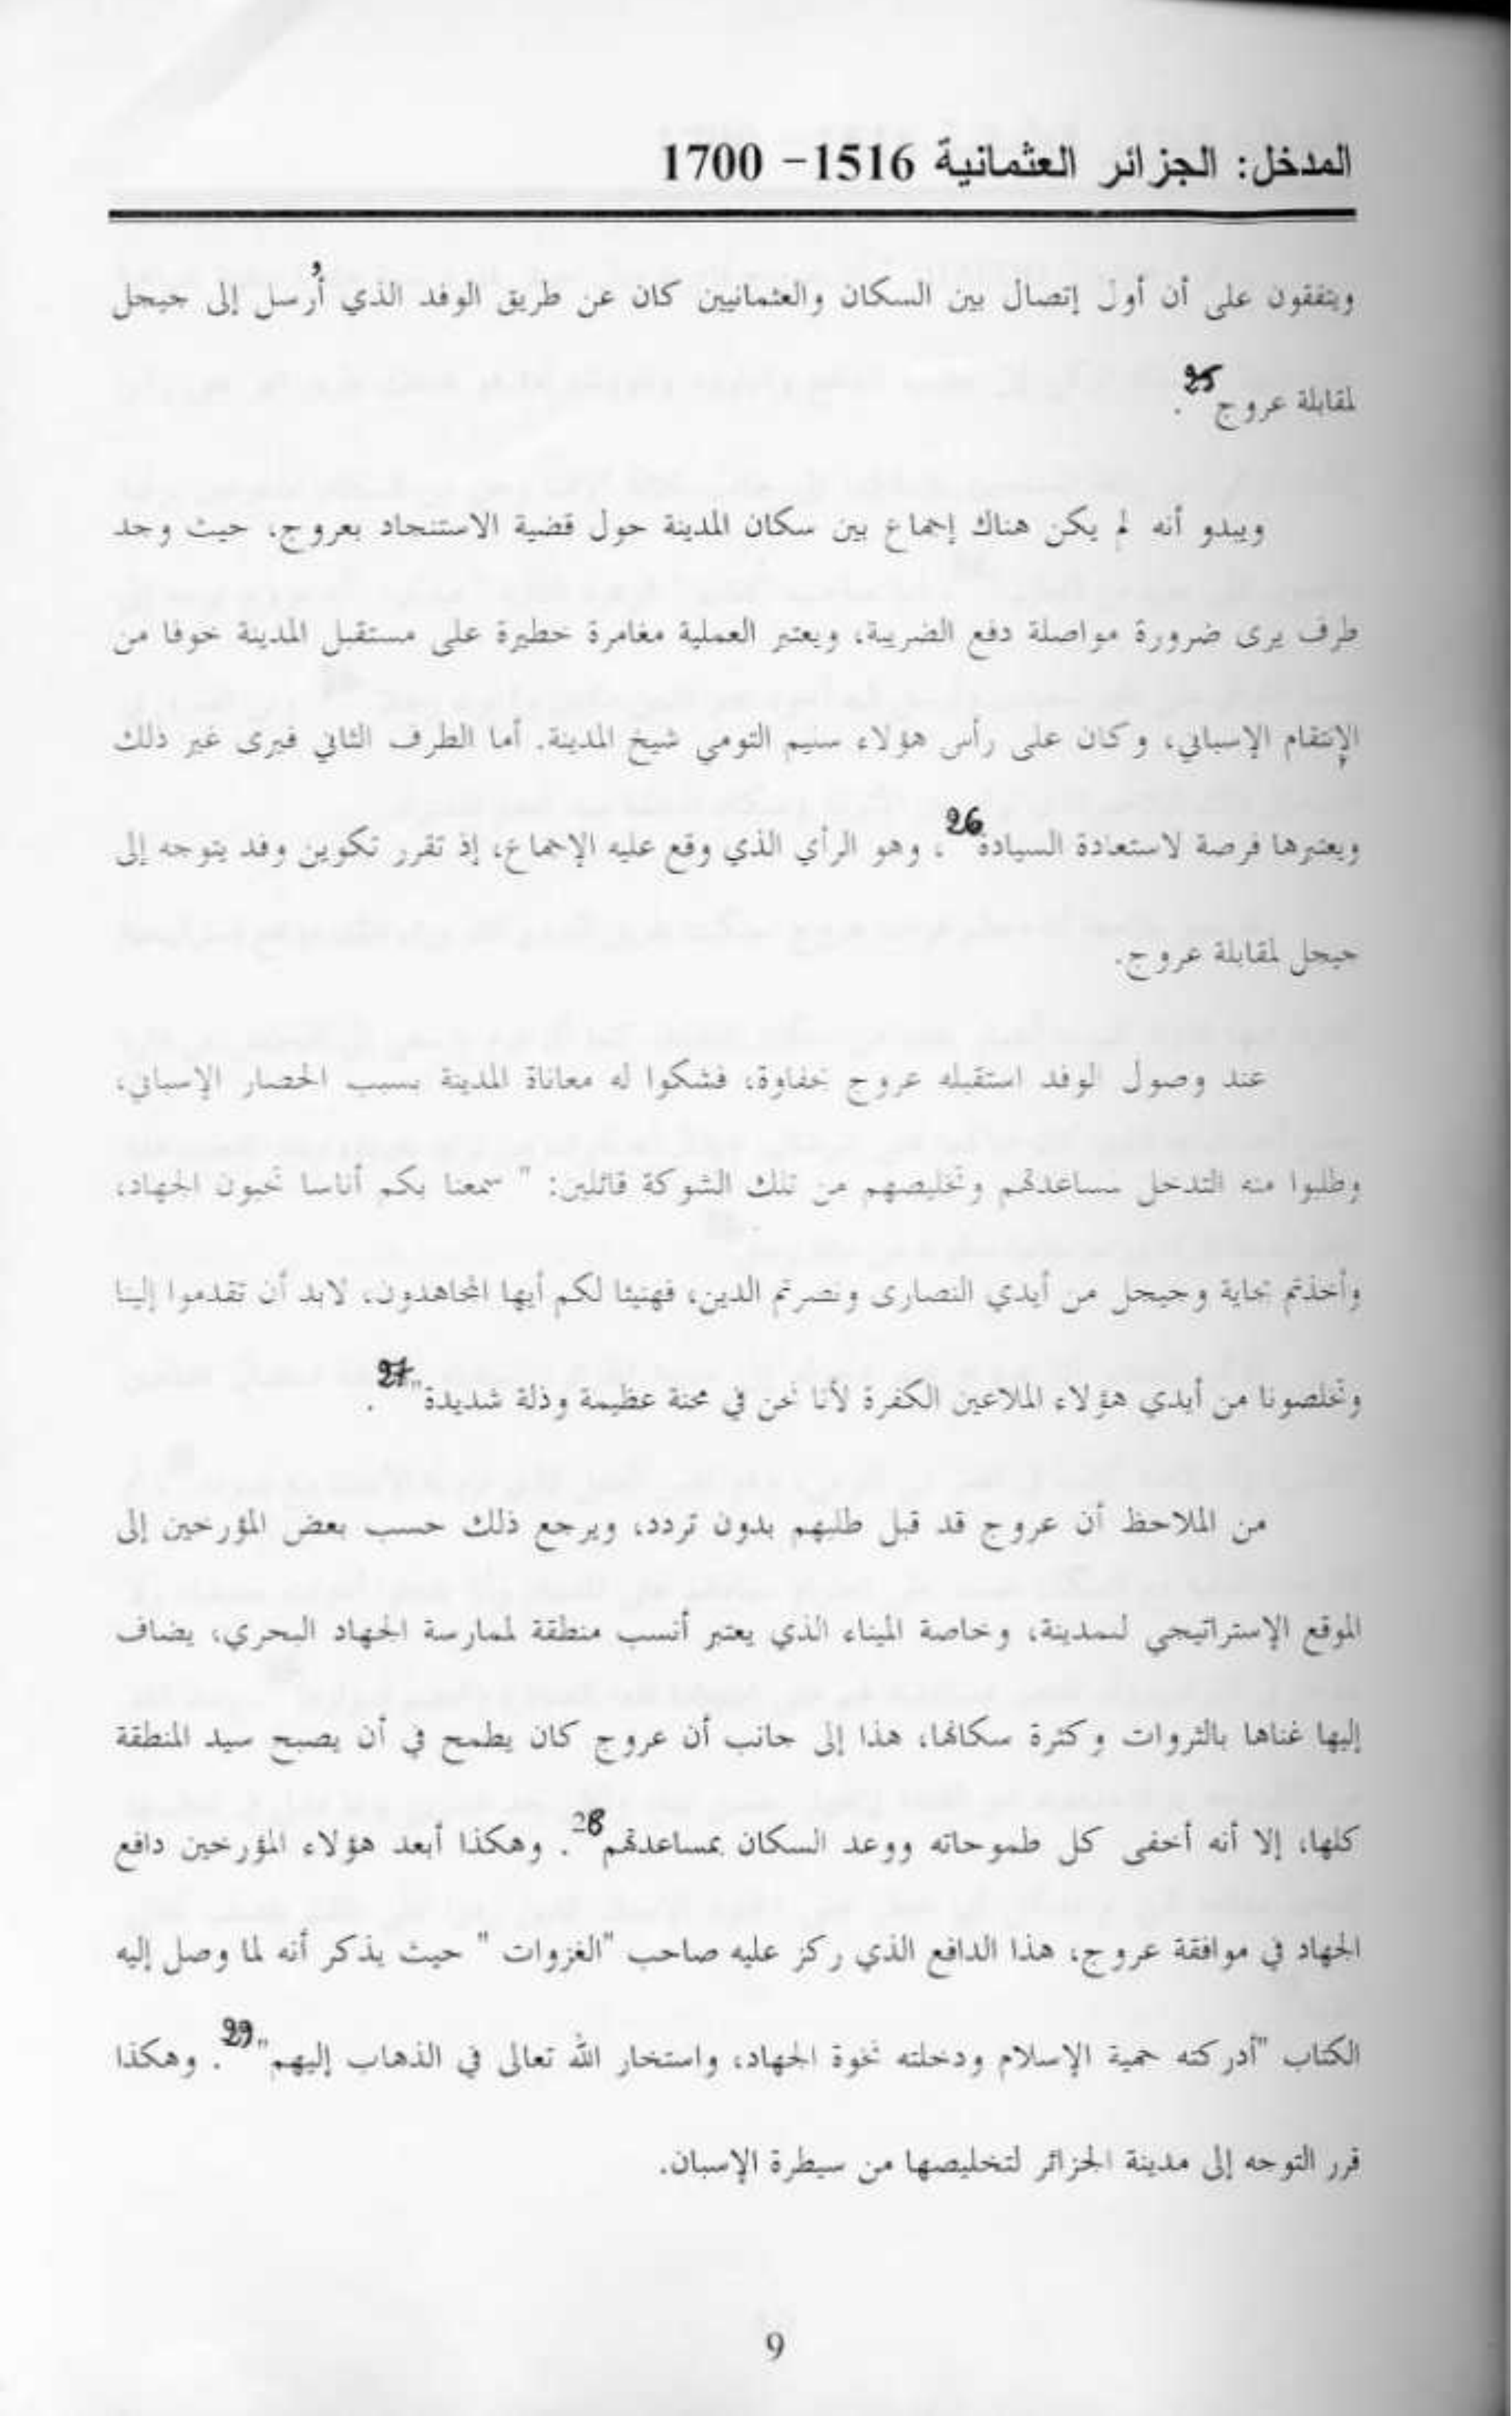 المدخل: الجزائر العثمانية 1516– 1700
ويتفقون على أن أول إتصال بين السكان والعثمانيين كان عن طريق الوفد الذي أُرسل إلى جيجل
لمقابلة عروج25.
ويبدو أنه لم يكن هناك إجماع بين سكان المدينة حول قضية الاستنجاد بعروج، حيث وجد
طرف يرى ضرورة مواصلة دفع الضريبة، ويعتبر العملية مغامرة خطيرة على مستقبل المدينة خوفا من
الإنتقام الإسباني، وكان على رأس هؤلاء سليم التومي شيخ المدينة. أما الطرف الثاني فيرى غير ذلك
ويعتبرها فرصة لاستعادة السيادة26، وهو الرأي الذي وقع عليه الإجماع، إذ تقرر تكوين وفد يتوجه إلى
جيجل لمقابلة عروج.
عند وصول الوفد استقبله عروج بحفاوة، فشكوا له معاناة المدينة بسبب الحصار الإسباني،
وطلبوا منه التدخل لمساعدتهم وتخليصهم من تلك الشوكة قائلين: " سمعنا بكم أناسا تحبون الجهاد،
وأخذتم بجاية وجيجل من أيدي النصارى ونصرتم الدين، فهنيئا لكم أيها المجاهدون، لابد أن تقدموا إلينا
وتخلصونا من أيدي هؤلاء الملاعين الكفرة لأنا نحن في محنة عظيمة وذلة شديدة"27.
من الملاحظ أن عروج قد قبل طلبهم بدون تردد، ويرجع ذلك حسب بعض المؤرخين إلى
الموقع الإستراتيجي للمدينة، وخاصة الميناء الذي يعتبر أنسب منطقة لممارسة الجهاد البحري، يضاف
إليها غناها بالثروات وكثرة سكانها، هذا إلى جانب أن عروج كان يطمح في أن يصبح سيد المنطقة
كلها، إلا أنه أخفى كل طموحاته ووعد السكان بمساعدتهم28. وهكذا أبعد هؤلاء المؤرخين دافع
الجهاد في موافقة عروج، هذا الدافع الذي ركز عليه صاحب "الغزوات " حيث يذكر أنه لما وصل إليه
الكتاب "أدركته حمية الإسلام ودخلته نخوة الجهاد، واستخار الله تعالى في الذهاب إليهم"29. وهكذا
قرر التوجه إلى مدينة الجزائر لتخليصها من سيطرة الإسبان.
9